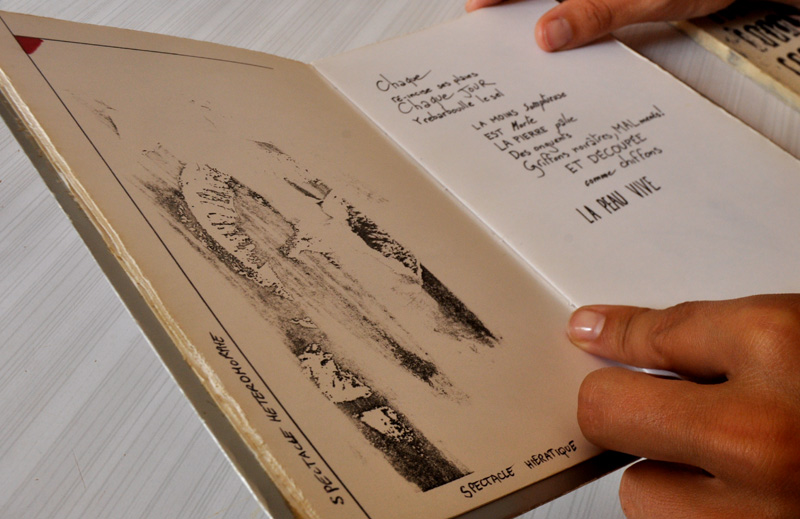 Chaque
ré-incise ses plaies
Chaque JOUR
Y rebarbouille le sel
LA MOINS
EST Morte
LA PIERRE
Des onguents
Griffons noirâtres, MAL
ET DÉCOUPÉE
comme chiffons
LA PEAU VIVE
SPECTACLE HÉTÉRONOMIE
SPECTACLE HIÉRATIQUE